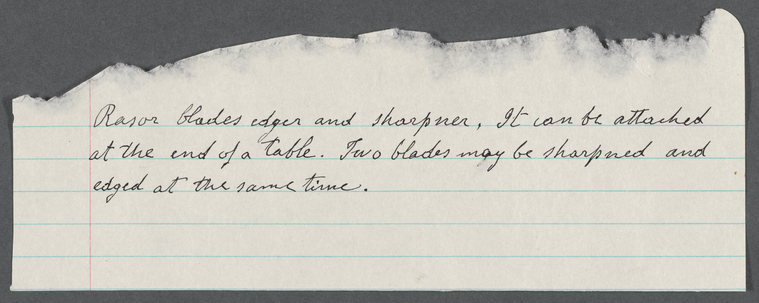 Rasor blades edger and sharpner, It can be attached
at the end of a table. Two blades may be sharpned and
edged at the same time.